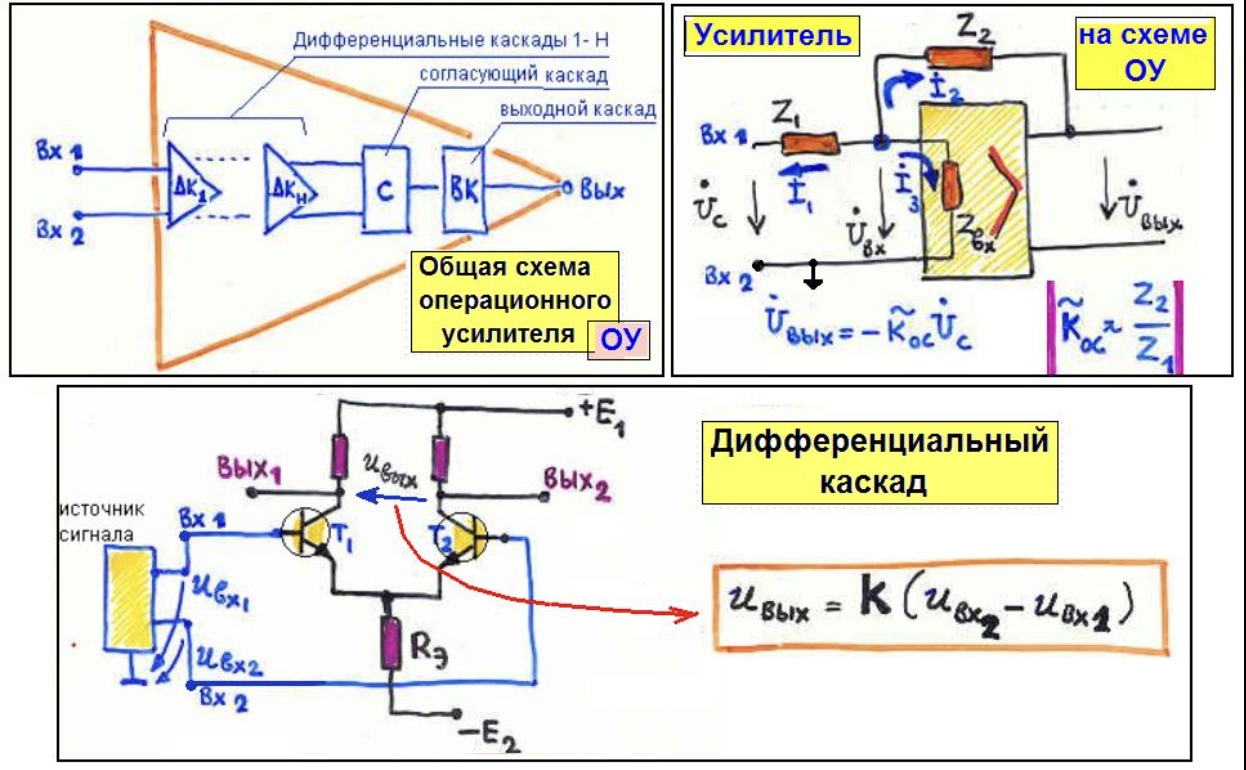 Дифференциальные каскады 1- Н
согласующий каскад
выходной каскад
Вх 1
Вх 2
ΔК1
ΔКн
С
ВК
Вых
Общая схема
операционного
усилителя
ОУ
Усилитель
на схеме
ОУ
Z₂
İ₂
Z₁
Вх 1
İ₁
İ₃
Zвх
U̇с
U̇вх
U̇вых
Вх 2
U̇вых = - K̃ос U̇с
K̃ос ≈ Z₂/Z₁
+E₁
Вых₁
uвых
Вых₂
Дифференциальный
каскад
источник
сигнала
Вх 1
T₁
T₂
uвх₁
uвых = K (uвх₂ - uвх1)
Rэ
uвх2
Вх 2
-E₂